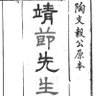 陶文毅公原本
靖節先生